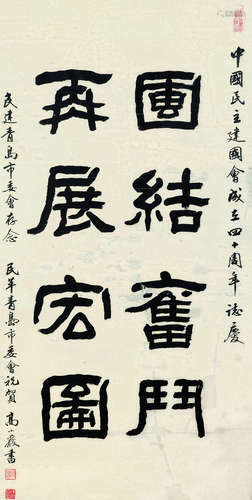 中國民主建國會成立四十周年誌慶
團結奮鬥
再展宏圖
民建青島市委會存念
民革青島市委會祝賀 高小巖書